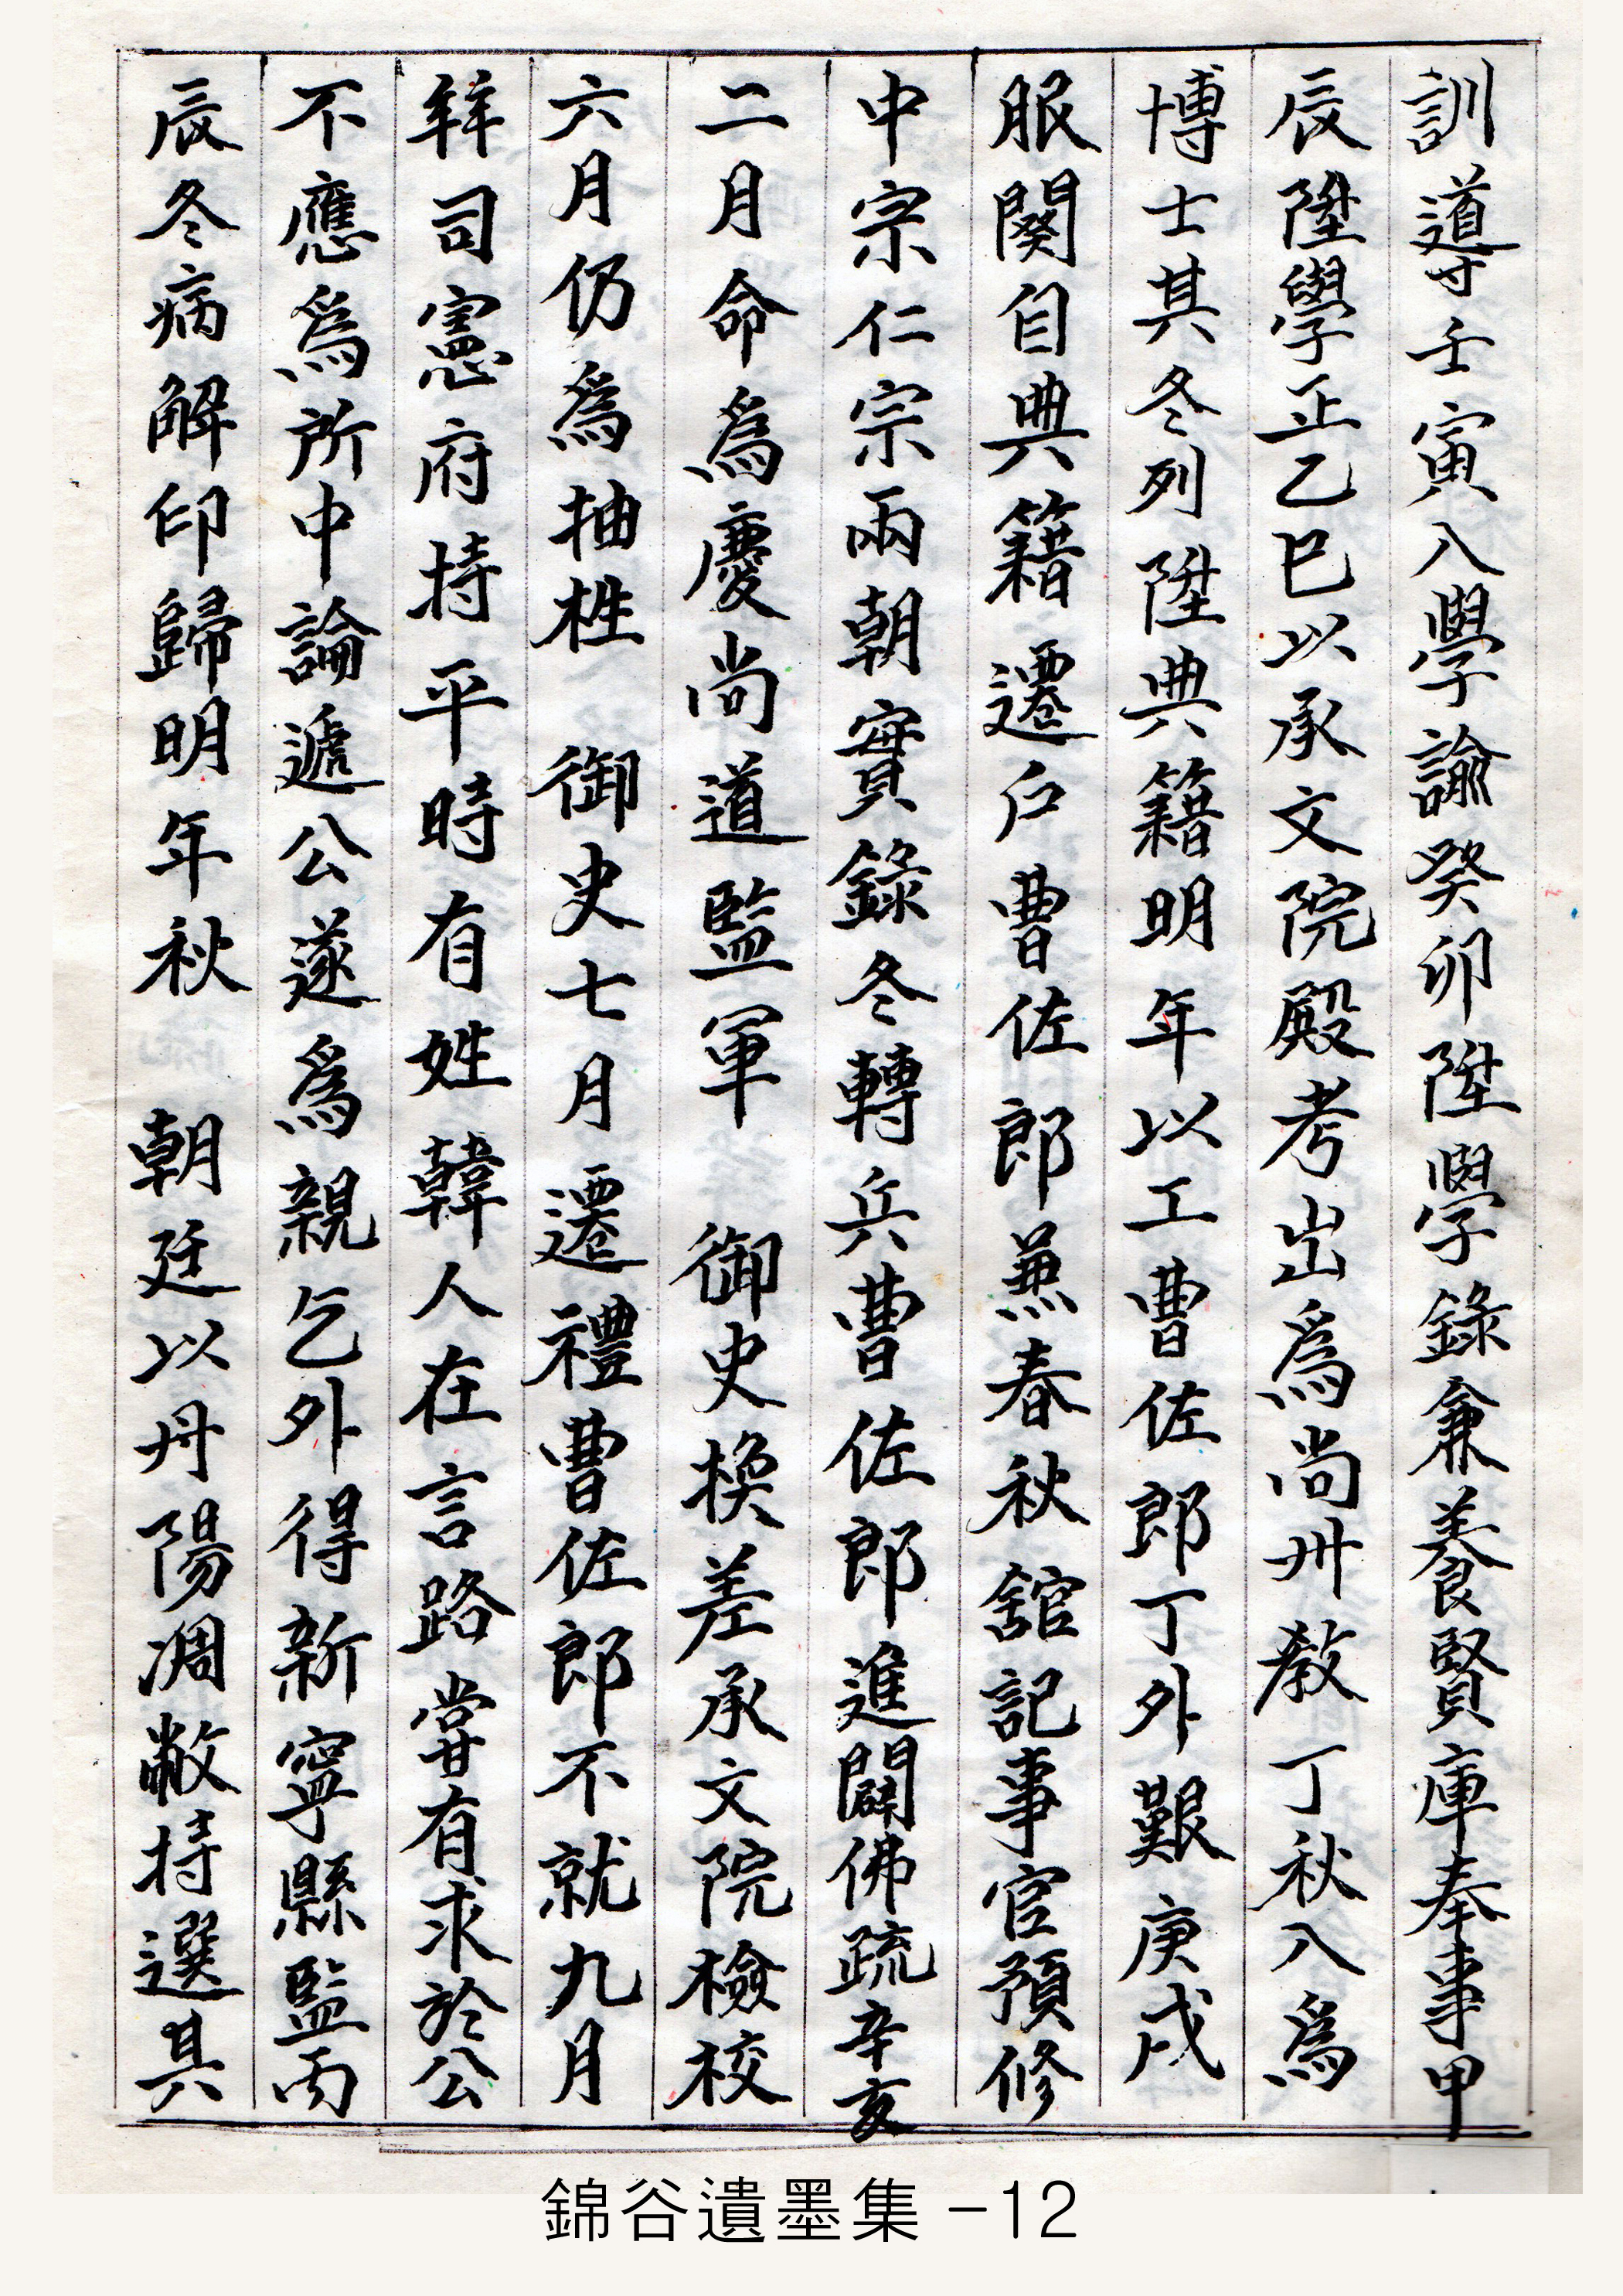 訓導壬寅入學諭癸卯陞學錄兼養賢庫奉事甲
辰陞學正乙巳以承文院殿考出爲尚州教丁秋入爲
博士其冬列陞典籍明年以工曹佐郎丁外艱庚戌
服闋自典籍遷戶曹佐郎兼春秋舘記事官預修
中宗仁宗兩朝實錄冬轉兵曹佐郎進闢佛疏辛亥
二月命爲慶尚道監軍 御史換差承文院檢校
六月仍爲抽栍 御史七月遷禮曹佐郎不就九月
拜司憲府持平時有姓韓人在言路嘗有求於公
不應爲所中論遞公遂爲親乞外得新寧縣監丙
辰冬病解印歸明年秋 朝廷以丹陽凋敝持選具
錦谷遺墨集 -12